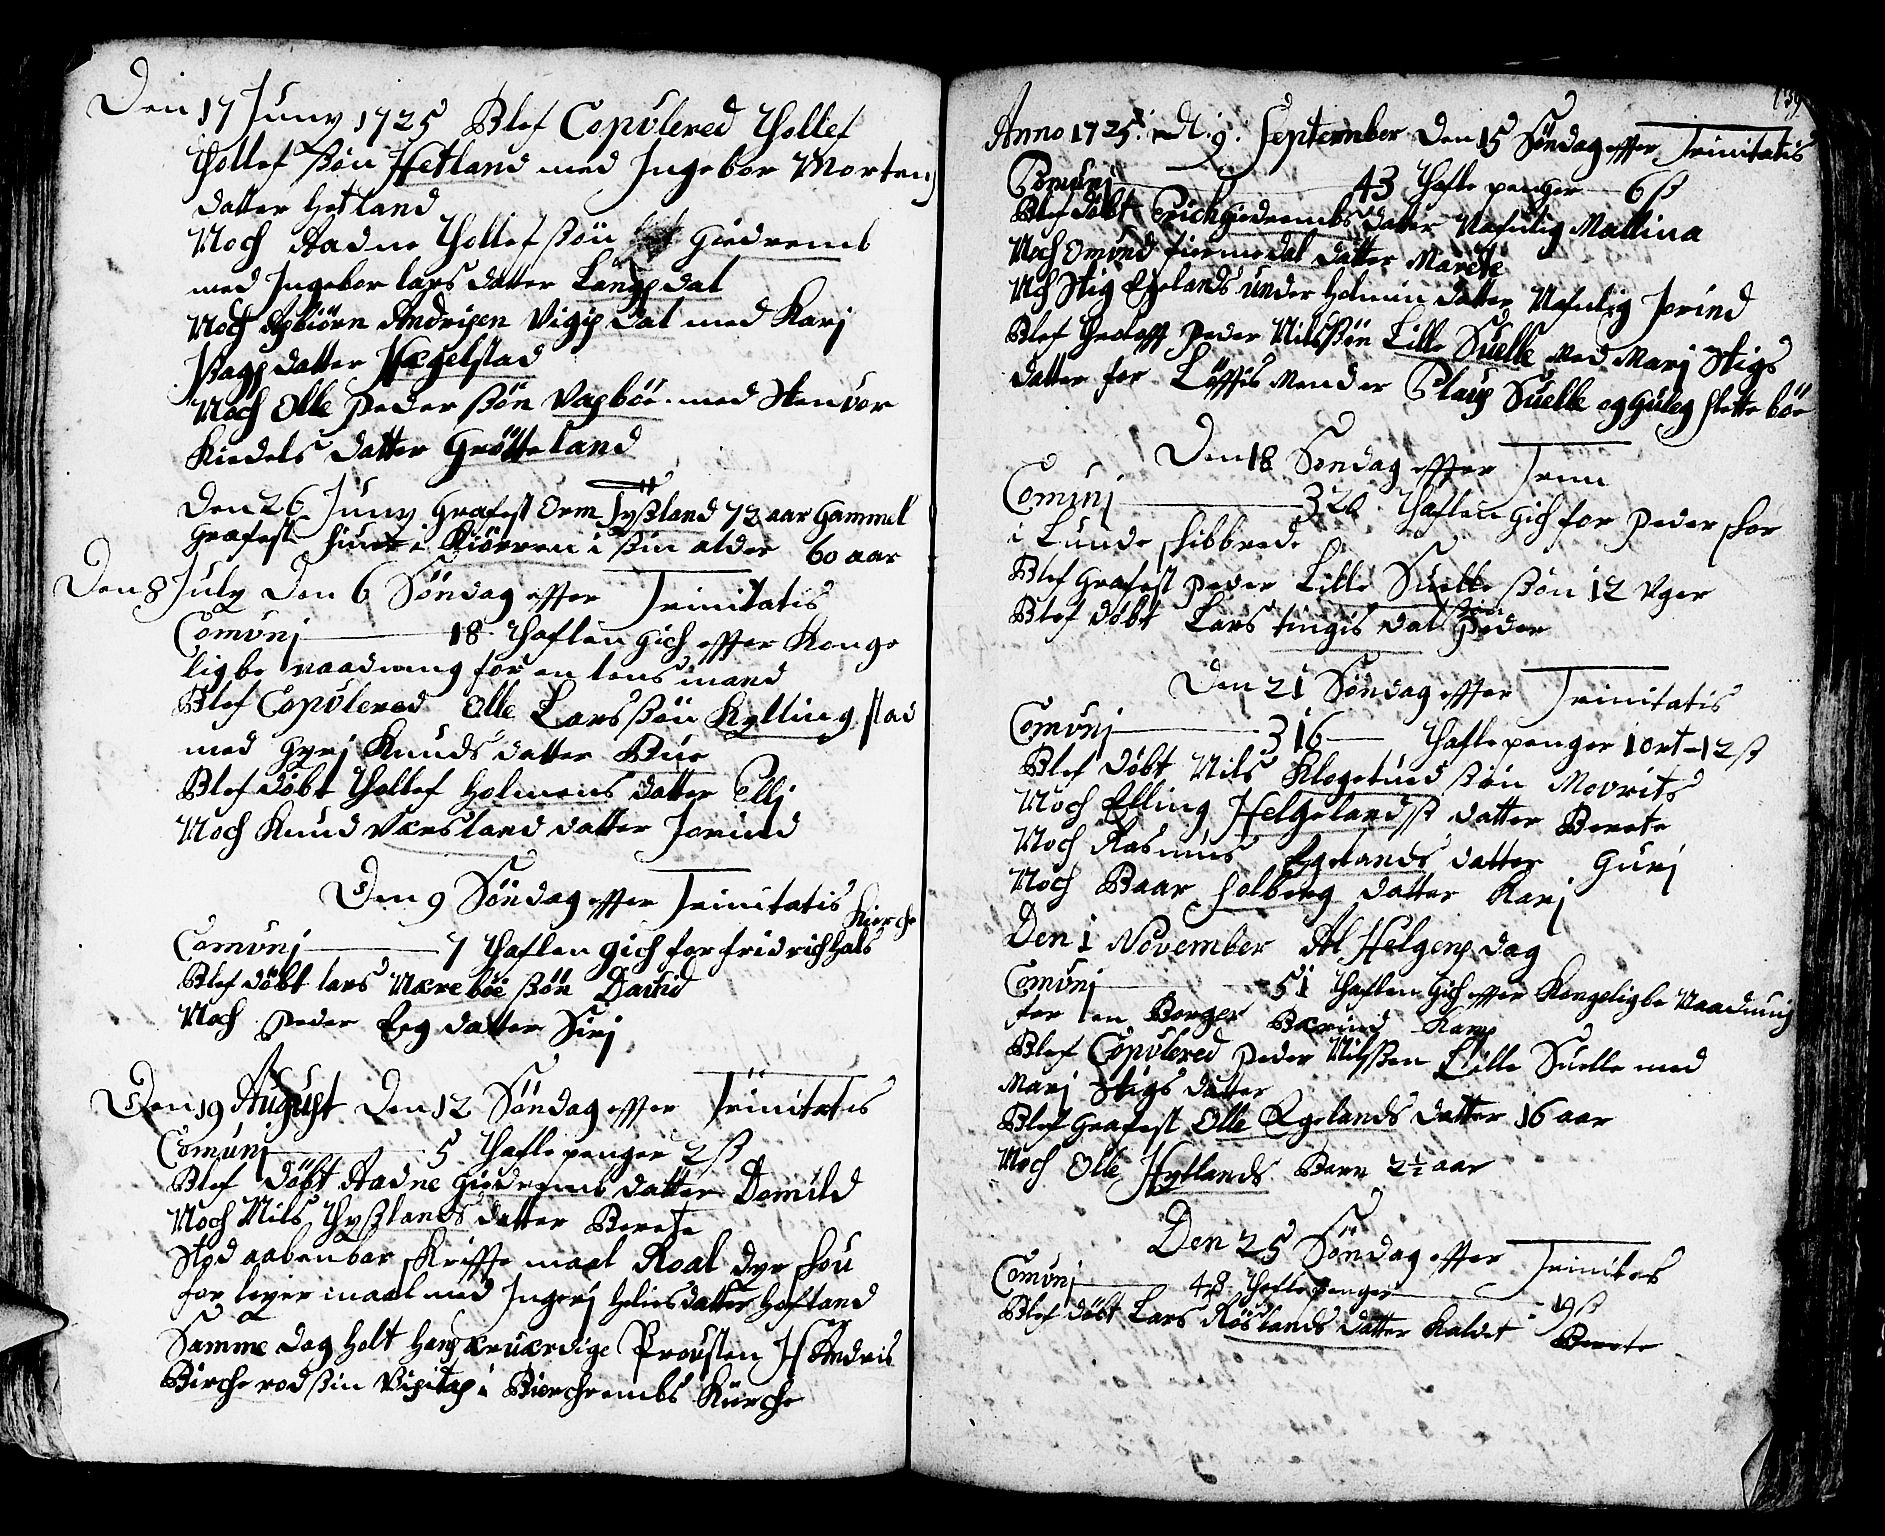 Den 17 Juny 1725 Blef Copulered Tollef
Tollef sßön Hetland med Ingebor Morten
datter Hetland
Noch Aadne Tollefsßön Giedremb
med Ingebor lars datter Langsdal
Noch Asbiörn Andrisen Vigisdal med Karj
datter Hægelstad
Noch Olle Peder sßön Vasböe med Stenvor
Kiedels datter Grötteland
Den 26 Juny Grafest Orm Tysßland 72 aar Gammel
Grafest i Kiörren i sßin alder 60 aar
Den 8 July Den 6 Söndag effter Trinitatis
Comuni 18 Taflen gich effter Konge
ligbe naadning for en lens mand
Blef Copulered Olle Larssßön Kyllingstad
med Gyrj Knuds datter Bue
Blef döbt Tollef Holmens datter Ellj
Noch Knud Værsland datter Jorind
Den 9 Söndag effter Trinitatis
Kierche
Comuni 7 Taflen gich for fridrichhals
Blef döbt lars Næreböe sßön David
Noch Peder Eeg datter Sirj
Den 19 August Den 12 Söndag effter Trinitatis
Comuni 5 Taflepenger 2 ß
Blef döbt Aadne Giedrems datter Domild
Noch Nils Tysßlands datter Berete
Stod aabenbar skriffte maal Roal Dyrskou
for leyer maal med Ingerj Helies datter Hofland
Samme dag holt hans ærværdige Provsten H Andris
Bircherod sßin Visitas i Bierchrembs Kirche
Anno 1725 d. 9. September Den 15 Söndag effter Trinitatis
Comuni 43 Tafle penger 6 ß
Blef döbt Erich Giedrembs datter Nafnlig Mallina
Noch Omund fiermedal datter Marete
Noch Stig Egelands under Holmen datter Nafnlig Jorind
Blef Troloff Peder Nilssßön Lille Suelle med Marj Stigs
datter for Löffts mender Claus Suelle og Guleg Sletteböe
Den 18 Söndag effter Trini
Comuni 32 Taflen gich for Peder
i Lunde schibbrede
Blef grafest Peder Lille Suelle sßön 12 Vger
Blef döbt Lars tingisdal sßön Peder
Den 21 Söndag effter Trinitatis
Comuni 316 Taflepenger 1 ort 12 ß
Blef döbt Nils Klogetued sßön Movrits
Noch Elling Helgelands datter Berete
Noch Rasmus Egelands datter Gurj
Noch Baar Solberg datter Karj
Den 1 November Al Helgens dag
Comuni 51 Taflen gich effter Kongeligbe Naadning
for en Borger Bærind Kamp
Blef Copulered Peder Nilssßen Lille Suelle med
Marj Stigs datter
Blef grafest Olle Egelands datter 16 aar
Noch Olle Hytlands Barn 2½ aar
Den 25 Söndag effter Trinitas
Comuni 48 Taflepenger 19 ß
Blef döbt Lars Röslands datter kaldet Berete